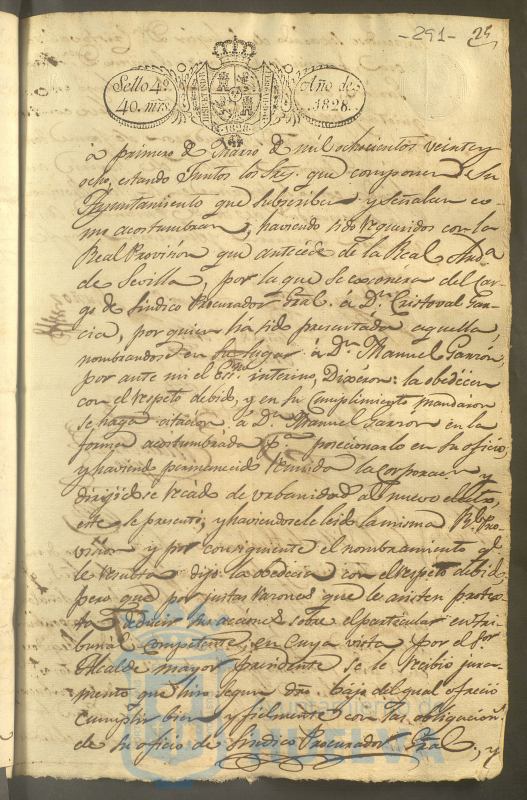 -291- 25
Sello 4º
40. mrs.
Año de
1828.
1828
a primero d Marzo d mil ochocientos veinte y
ocho, estando Juntos los Sres. que componen este
Ayuntamiento que subscriben y señalan co-
mo acostumbran, haviendo sido requeridos con la
Real Provision que antecede de la Real Auda
de Sevilla, por la que se exonera del Car-
go de Sindico Procurador Gral. a Dn. Cristoval Gar-
cia, por quien ha sido presentada aquella
nombrandose en su lugar a Dn. Manuel Garzon,
por ante mi el Esno. interino, Dixeron: la obedecen
con el respeto debido, y en su cumplimiento mandaron
se haga citacion a Dn. Manuel Garzon en la
forma acostumbrada pa. posicionarlo en su oficio,
y haviendo permanecido reunida la corporacion y
dirigidose recado de urbanidad al nuevo electo
este se presentó, y haviendosele leido la misma Rl. Pro-
vision y por consiguiente el nombramiento ql.
le resulta dijo la obedecia con el respeto debido
pero que por justas razones que le asisten protex-
ta deducir sus acciones sobre el particular en tri-
bunal competente, en cuya vista por el Sor.
Alcalde mayor Presidente se le recibio jura-
mento que hizo segun dro. bajo del qual ofrecio
cumplir bien y fielmente con las obligacions.
de su oficio de Sindico Procurador Gral, y
Ayuntamiento de
HUELVA